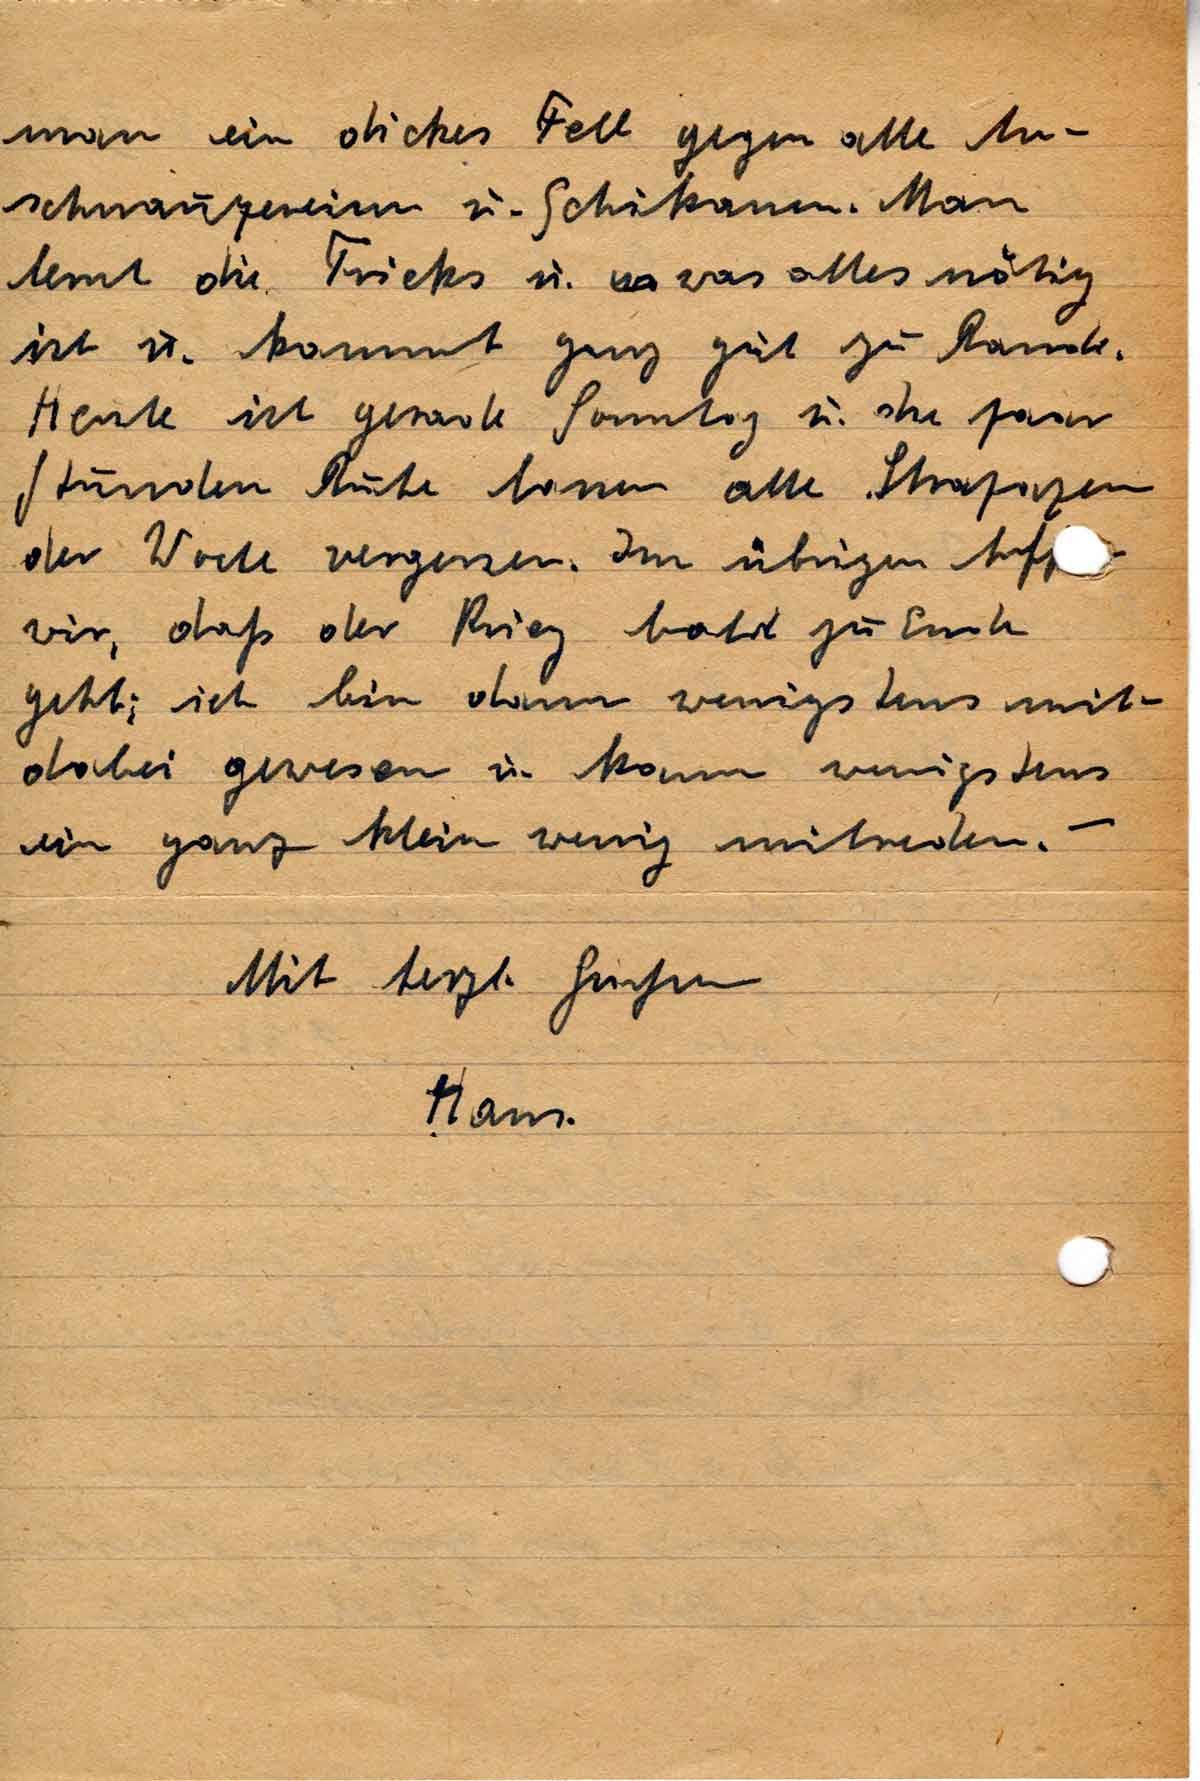 man ein dickes Fell gegen alle An-
schnauzereien u. Schikanen. Man
lernt die Tricks u. was alles nötig
ist u. kommt ganz gut zu Rande.
Heute ist gerade Sonntag u. die paar
Stunden Ruhe lassen alle Strapazen
der Woche vergessen. Im übrigen hoffen
wir, daß der Krieg bald zu Ende
geht; ich bin dann wenigstens mit-
dabei gewesen u. kann wenigstens
ein ganz klein wenig mitreden. –
Mit herzl. Grüßen
Hans.